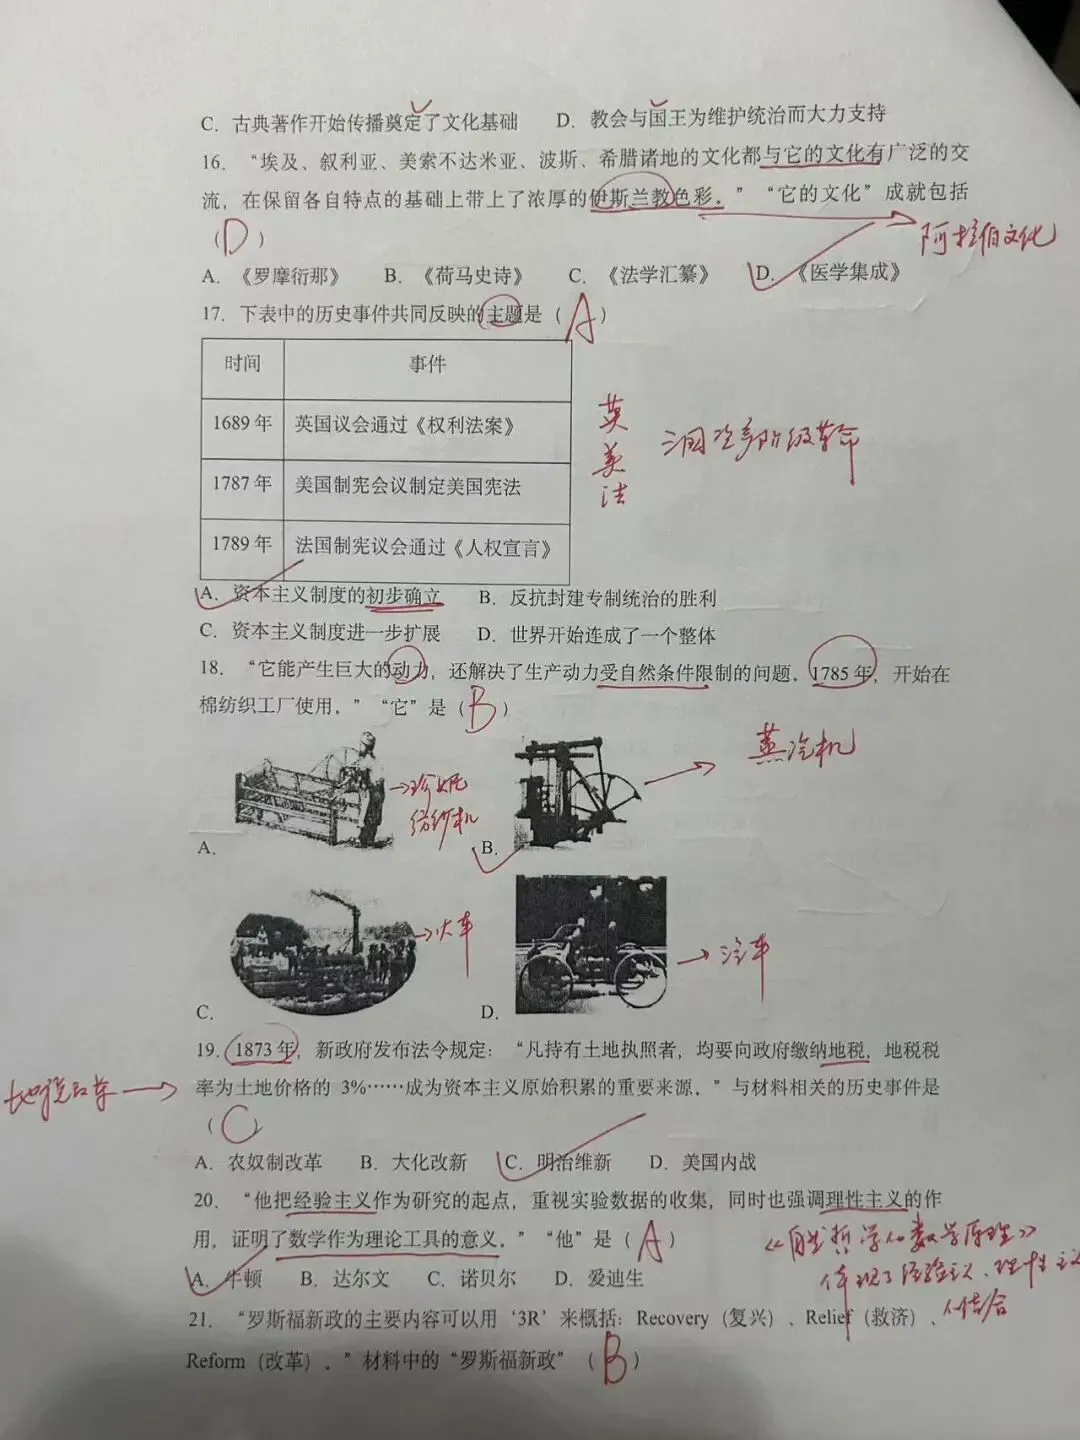 C. 古典著作开始传播奠定了文化基础 D. 教会与国王为维护统治而大力支持
16. “埃及、叙利亚、美索不达米亚、波斯、希腊诸地的文化都与它的文化有广泛的交
流，在保留各自特点的基础上带上了浓厚的伊斯兰教色彩。”“它的文化”成就包括
（D） 阿拉伯文化
A. 《罗摩衍那》 B. 《荷马史诗》 C. 《法学汇纂》 D. 《医学集成》
17. 下表中的历史事件共同反映的主题是（A）
时间 事件
1689年 英国议会通过《权利法案》
1787年 美国制宪会议制定美国宪法
1789年 法国制宪议会通过《人权宣言》
英
美
法
三国资产阶级革命
A. 资本主义制度的初步确立 B. 反抗封建专制统治的胜利
C. 资本主义制度进一步扩展 D. 世界开始连成了一个整体
18. “它能产生巨大的动力，还解决了生产动力受自然条件限制的问题。1785年，开始在
棉纺织工厂使用。”“它”是（B）
珍妮
纺纱机
蒸汽机
A. B.
火车
汽车
C. D.
19. 1873年，新政府发布法令规定：“凡持有土地执照者，均要向政府缴纳地税，地税税
地税改革
率为土地价格的 3%……成为资本主义原始积累的重要来源。”与材料相关的历史事件是
（C）
A. 农奴制改革 B. 大化改新 C. 明治维新 D. 美国内战
20. “他把经验主义作为研究的起点，重视实验数据的收集，同时也强调理性主义的作
用，证明了数学作为理论工具的意义。”“他”是（A）
《自然哲学的数学原理》
体现了经验主义、理性主义
的结合
A. 牛顿 B. 达尔文 C. 诺贝尔 D. 爱迪生
21. “罗斯福新政的主要内容可以用‘3R’来概括：Recovery（复兴）、Relief（救济）、
Reform（改革）。”材料中的“罗斯福新政”（B）